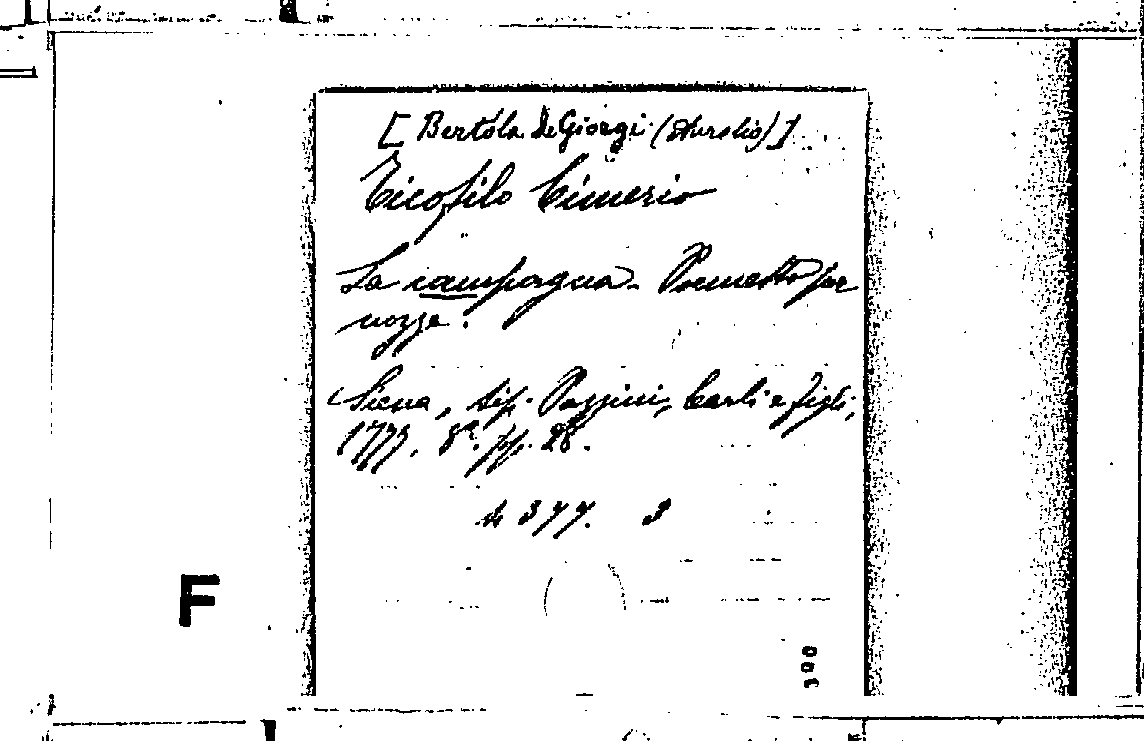 [Bertóla de Giorgi (Aurelio)]
Ticofilo Cimerio
La campagna. Poemetto per
nozze.
Siena, tip. Pazzini, Carli e figli,
8º. pp. 28.
4 377. 3
F
300